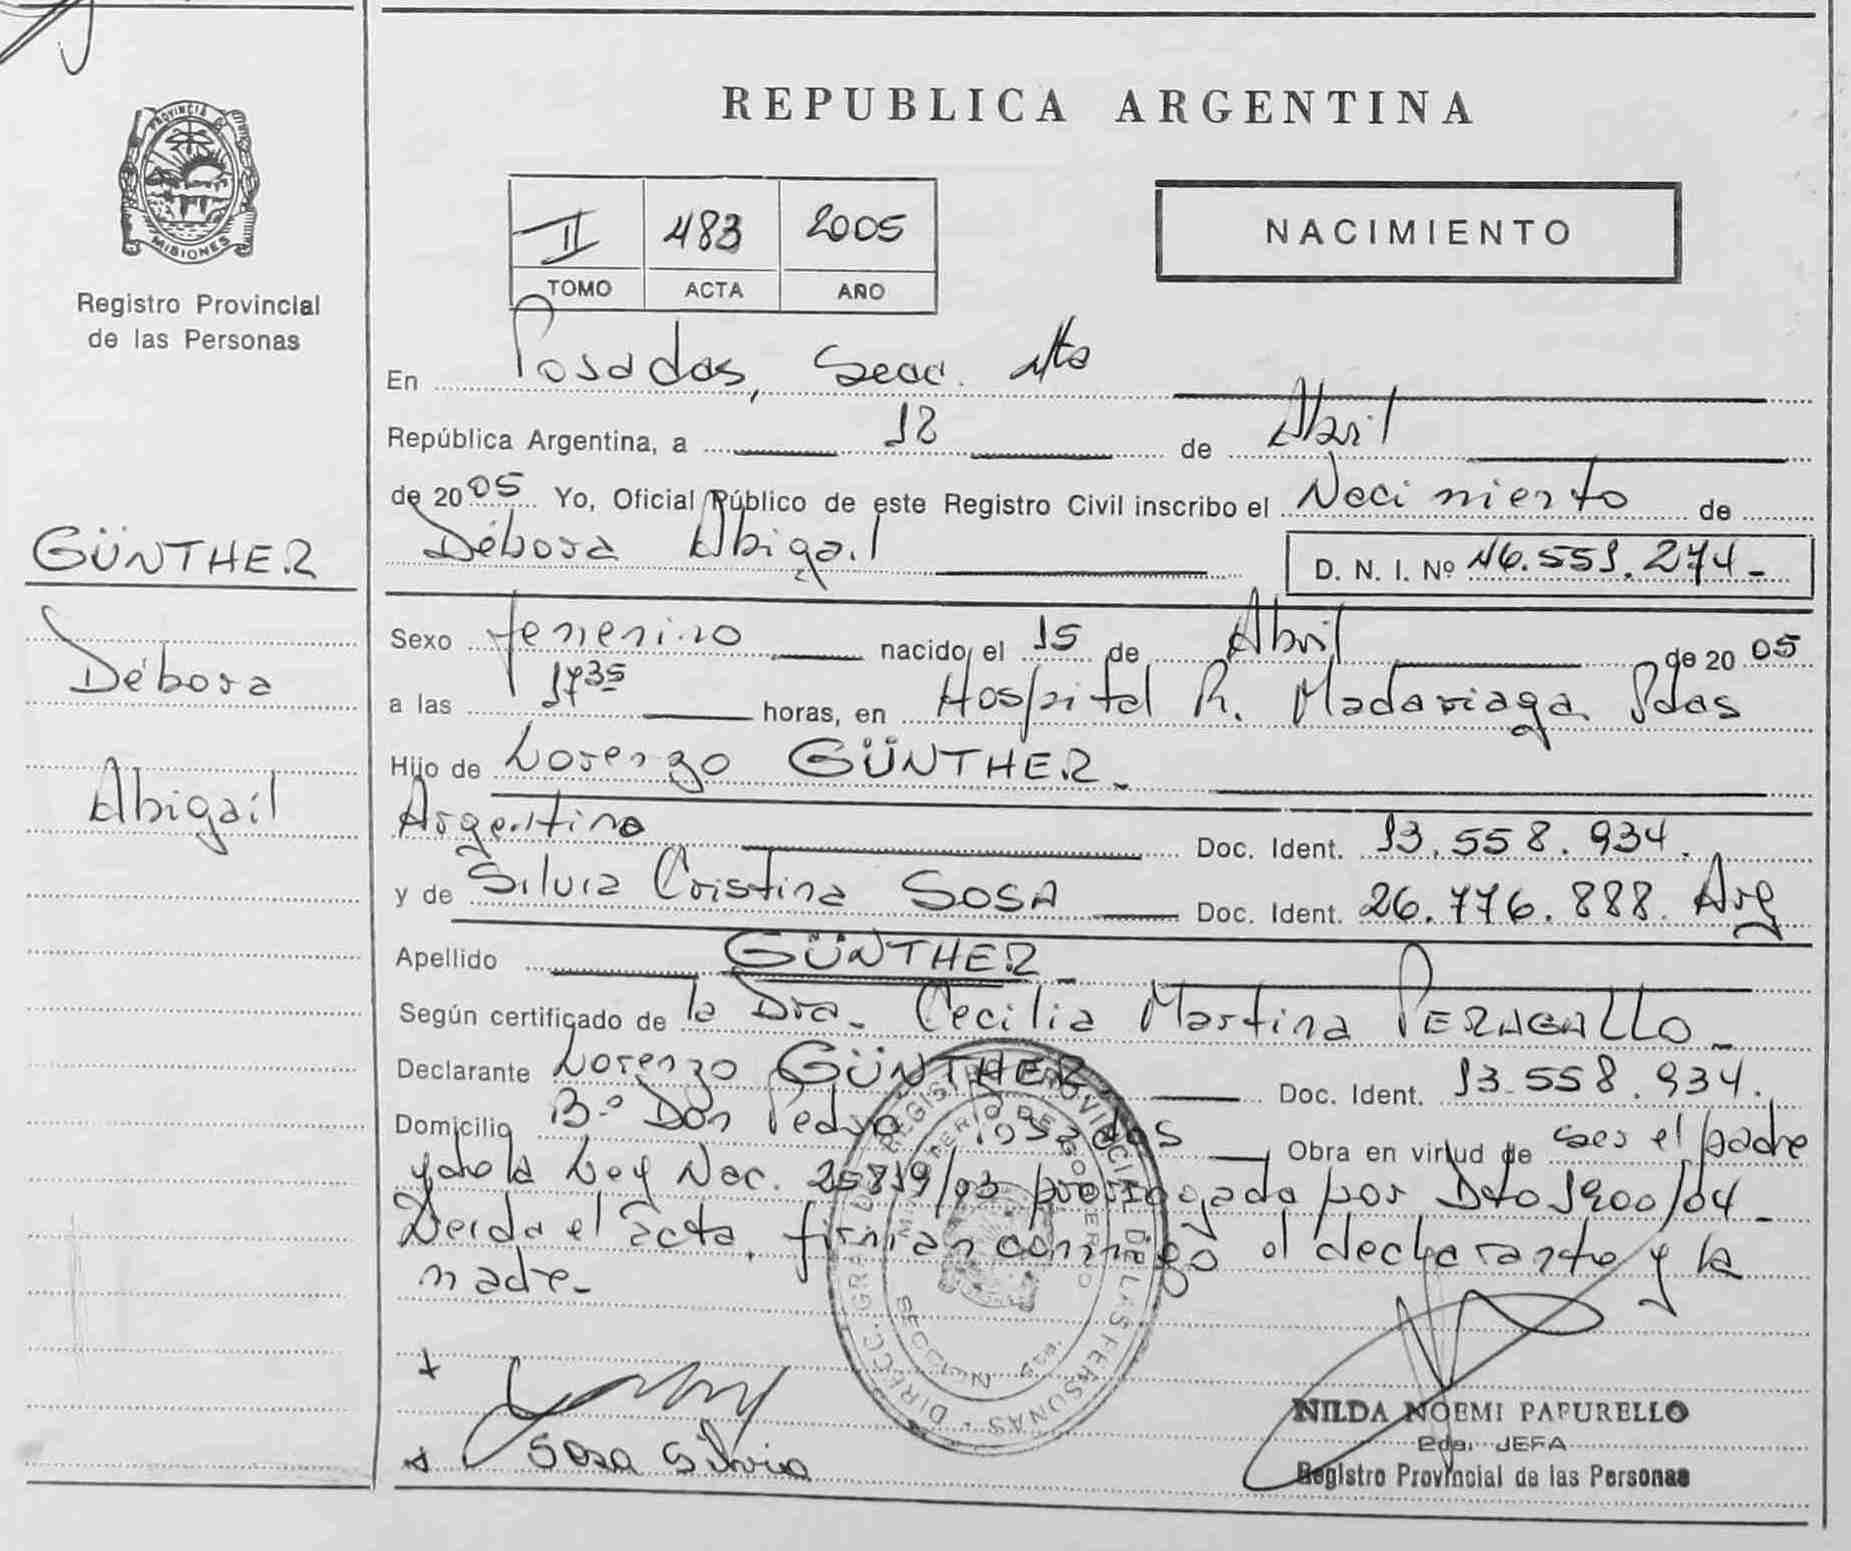 PROVINCIA DE
MISIONES
Registro Provincial
de las Personas
GÜNTHER
Débora
Abigail
REPUBLICA ARGENTINA
II 483 2005
TOMO ACTA AÑO
NACIMIENTO
En Posadas, Secc. 4ta
República Argentina, a 18 de Abril
de 2005 Yo, Oficial Público de este Registro Civil inscribo el Nacimiento de
Débora Abigail D. N. I. Nº 46.551.274-
Sexo femenino nacido el 15 de Abril de 2005
a las 17 35 horas, en Hospital R. Madariaga Pdas
Hijo de Lorenzo GÜNTHER-
Argentino Doc. Ident. 13.558.934.
y de Silvia Cristina SOSA Doc. Ident. 26.776.888. Arg
Apellido GÜNTHER-
Según certificado de la Dra. Cecilia Martina PERAGALLO-
Declarante Lorenzo GÜNTHER Doc. Ident. 13.558.934.
Domicilio B.º Don Pedro Posadas Obra en virtud de ser el padre
y de la Ley Nac. 25819/03 prorrogada por Dto 1900/04-
Leida el acta, firman conmigo el declarante y la
madre-
Sosa Silvia
DIRECC. GRAL. DEL REGISTRO PROVINCIAL DE LAS PERSONAS
MINISTERIO DE GOBIERNO
SECCION
NILDA NOEMI PAPURELLO
2da. JEFA
Registro Provincial de las Personas